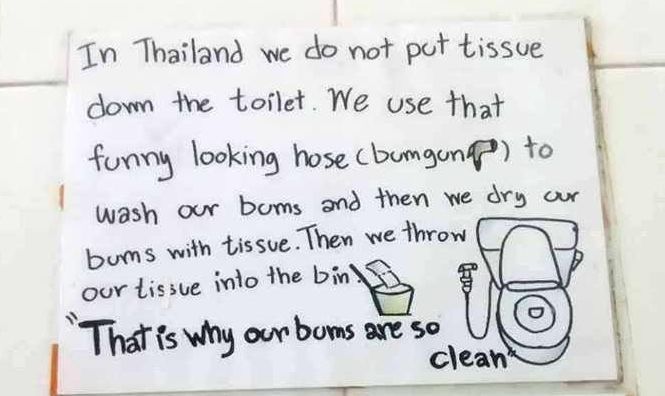 In Thailand we do not put tissue
down the toilet. We use that
funny looking hose (bumgun) to
wash our bums and then we dry our
bums with tissue. Then we throw
our tissue into the bin.
"That is why our bums are so
clean"